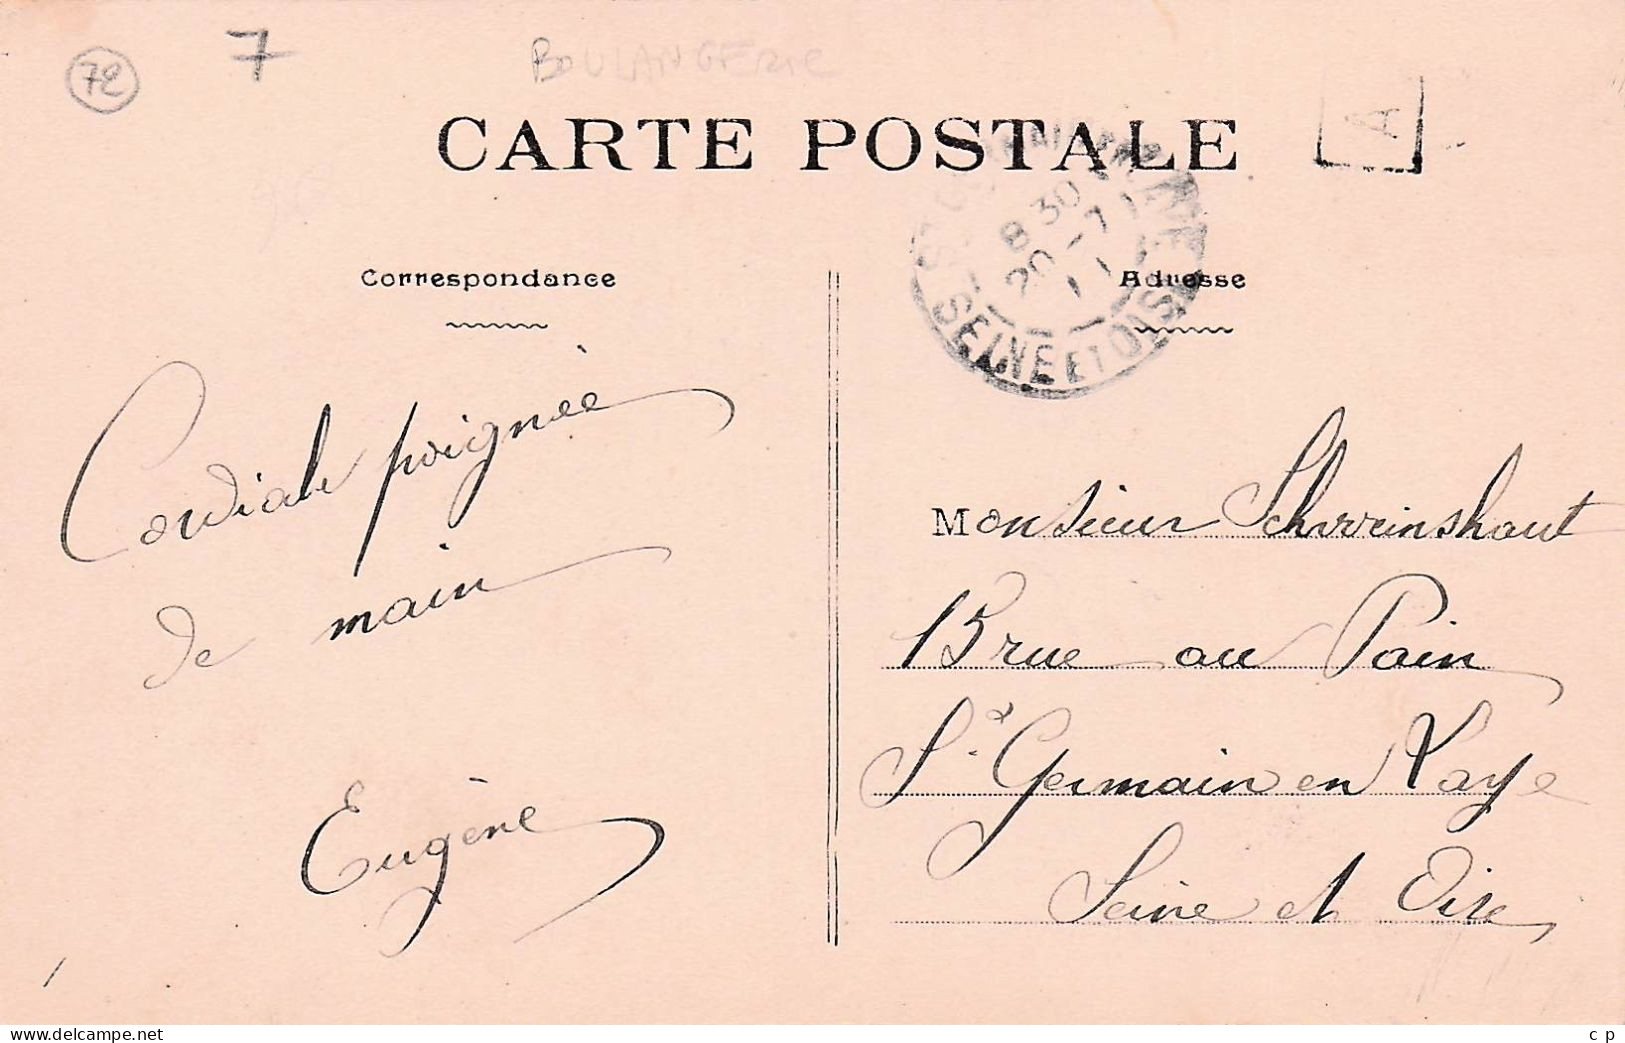 72
7
BOULANGERIE
CARTE POSTALE
A
8 30
20 - 7
11
SEINE ET OISE
Correspondance
Adresse
Cordiale poignée
de main
Eugène
Monsieur Schweinshaut
15 rue au Pain
St Germain en Laye
Seine et Oise
www.delcampe.net
marie072
c p